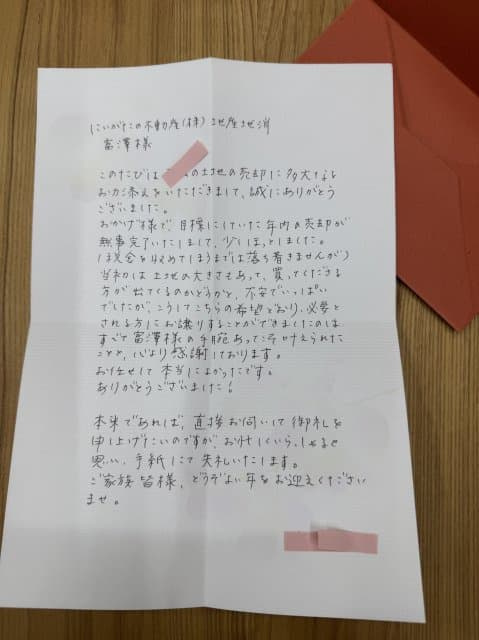 にいがたの不動産(株) 地産地消
富澤様
このたびは の土地の売却に多大なる
お力添えをいただきまして、誠にありがとう
ございました。
おかげ様で、目標にしていた年内の売却が
無事完了いたしまして、少しほっとしました。
(税金を収めてしまうまでは落ち着きませんが)
当初は土地の大きさもあって、買ってくださる
方が出てくるのかどうかと、不安でいっぱい
でしたが、こうしてこちらの希望どおり、必要と
される方にお譲りすることができましたのは
すべて富澤様の手腕あってこそ叶えられた
ことと、心より感謝しております。
お任せして本当によかったです。
ありがとうございました!
本来であれば、直接お伺いして御礼を
申し上げたいのですが、お忙しくいらっしゃると
思い、手紙にて失礼いたします。
ご家族皆様、どうぞよい年をお迎えください
ませ。